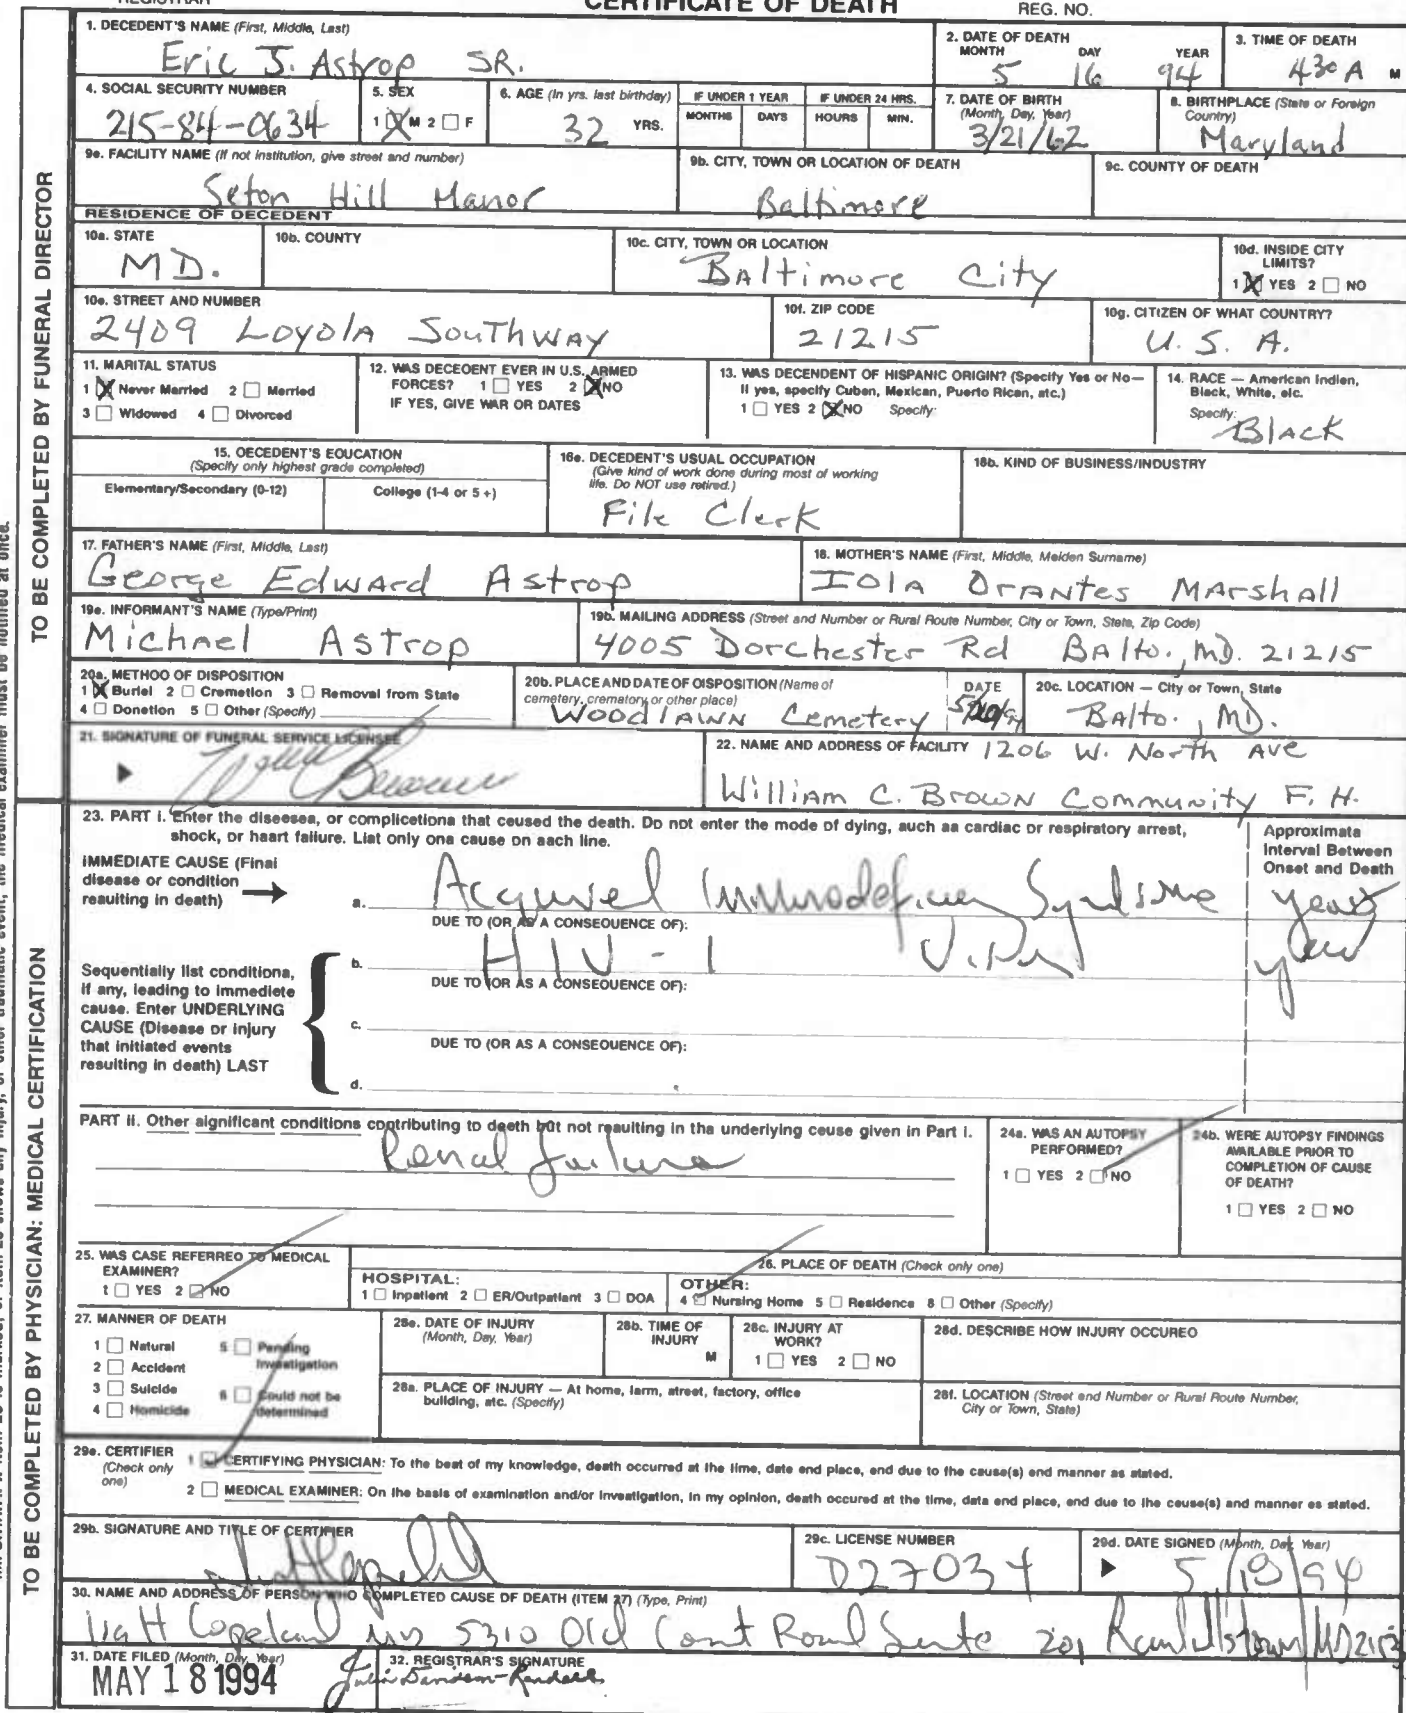 CERTIFICATE OF DEATH
REG. NO.
1. DECEDENT'S NAME (First, Middle, Last)
Eric J. Astrop SR.
2. DATE OF DEATH
MONTH DAY YEAR
5 16 94
3. TIME OF DEATH
430 A M
4. SOCIAL SECURITY NUMBER
215-84-0634
5. SEX
1 M 2 F
6. AGE (In yrs. last birthday)
32 YRS.
IF UNDER 1 YEAR
MONTHS DAYS
IF UNDER 24 HRS.
HOURS MIN.
7. DATE OF BIRTH
(Month, Day, Year)
3/21/62
8. BIRTHPLACE (State or Foreign
Country)
Maryland
9e. FACILITY NAME (If not institution, give street and number)
Seton Hill Manor
9b. CITY, TOWN OR LOCATION OF DEATH
Baltimore
9c. COUNTY OF DEATH
RESIDENCE OF DECEDENT
10a. STATE
MD.
10b. COUNTY
10c. CITY, TOWN OR LOCATION
Baltimore City
10d. INSIDE CITY
LIMITS?
1 YES 2 NO
10e. STREET AND NUMBER
2409 Loyola Southway
10f. ZIP CODE
21215
10g. CITIZEN OF WHAT COUNTRY?
U. S. A.
11. MARITAL STATUS
1 Never Married 2 Married
3 Widowed 4 Divorced
12. WAS DECEDENT EVER IN U.S. ARMED
FORCES? 1 YES 2 NO
IF YES, GIVE WAR OR DATES
13. WAS DECENDENT OF HISPANIC ORIGIN? (Specify Yes or No—
If yes, specify Cuben, Mexican, Puerto Rican, etc.)
1 YES 2 NO Specify:
14. RACE — American Indien,
Black, White, etc.
Specify:
Black
15. DECEDENT'S EDUCATION
(Specify only highest grade completed)
Elementary/Secondary (0-12)
College (1-4 or 5 +)
16e. DECEDENT'S USUAL OCCUPATION
(Give kind of work done during most of working
life. Do NOT use retired.)
File Clerk
16b. KIND OF BUSINESS/INDUSTRY
17. FATHER'S NAME (First, Middle, Last)
George Edward Astrop
18. MOTHER'S NAME (First, Middle, Meiden Surname)
Iola Orantes Marshall
19e. INFORMANT'S NAME (Type/Print)
Michael Astrop
19b. MAILING ADDRESS (Street and Number or Rural Route Number, City or Town, State, Zip Code)
4005 Dorchester Rd Balto., MD. 21215
20a. METHOD OF DISPOSITION
1 Buriel 2 Cremetion 3 Removal from State
4 Donetion 5 Other (Specify)
20b. PLACE AND DATE OF DISPOSITION (Name of
cemetery, crematory or other place)
Woodlawn Cemetery
DATE
20c. LOCATION — City or Town, State
Balto., MD.
21. SIGNATURE OF FUNERAL SERVICE LICENSEE
22. NAME AND ADDRESS OF FACILITY 1206 W. North Ave
William C. Brown Community F. H.
TO BE COMPLETED BY FUNERAL DIRECTOR
23. PART I. Enter the diseesea, or complicetiona that ceused the death. Do not enter the mode of dying, auch aa cardiac or respiratory arrest,
shock, or haart failure. Liat only one cause on aach line.
Approximata
Interval Between
Onset and Death
IMMEDIATE CAUSE (Final
disease or condition
reaulting in death)
a. Acquired Immunodeficiency Syndrome years
DUE TO (OR AS A CONSEQUENCE OF):
b. HIV-1 Virus
DUE TO (OR AS A CONSEQUENCE OF):
Sequentially list conditiona,
if any, leading to immediete
cause. Enter UNDERLYING
CAUSE (Disease or injury
that initiated events
resulting in death) LAST
c.
DUE TO (OR AS A CONSEQUENCE OF):
d.
PART II. Other aignificant conditions contributing to deeth but not reaulting in tha underlying ceuse given in Part I.
Renal failure
24a. WAS AN AUTOPSY
PERFORMED?
1 YES 2 NO
24b. WERE AUTOPSY FINDINGS
AVAILABLE PRIOR TO
COMPLETION OF CAUSE
OF DEATH?
1 YES 2 NO
25. WAS CASE REFERRED TO MEDICAL
EXAMINER?
1 YES 2 NO
26. PLACE OF DEATH (Check only one)
HOSPITAL:
1 Inpatient 2 ER/Outpatiant 3 DOA
OTHER:
4 Nursing Home 5 Residence 8 Other (Specify)
27. MANNER OF DEATH
1 Natural 5 Pending
Investigation
2 Accident
3 Suicide 6 Could not be
determined
4 Homicide
28e. DATE OF INJURY
(Month, Day, Year)
28b. TIME OF
INJURY
M
28c. INJURY AT
WORK?
1 YES 2 NO
28d. DESCRIBE HOW INJURY OCCURED
28a. PLACE OF INJURY — At home, larm, atreet, factory, office
building, atc. (Specify)
28f. LOCATION (Street end Number or Rural Route Number,
City or Town, State)
29e. CERTIFIER
(Check only
one)
1 CERTIFYING PHYSICIAN: To the beat of my knowledge, death occurred at the lime, date end place, end due to the cause(s) end manner as atated.
2 MEDICAL EXAMINER: On the basis of examination and/or Inveatigation, in my opinion, death occured at the time, data end place, end due to the ceuse(s) and manner es stated.
29b. SIGNATURE AND TITLE OF CERTIFIER
29c. LICENSE NUMBER
D27034
29d. DATE SIGNED (Month, Day, Year)
30. NAME AND ADDRESS OF PERSON WHO COMPLETED CAUSE OF DEATH (ITEM 27) (Type, Print)
Copeland MD 5310 Old Court Road Suite 201 Randallstown MD
31. DATE FILED (Month, Day, Year)
MAY 18 1994
32. REGISTRAR'S SIGNATURE
Julia Davidson-Randall
TO BE COMPLETED BY PHYSICIAN: MEDICAL CERTIFICATION